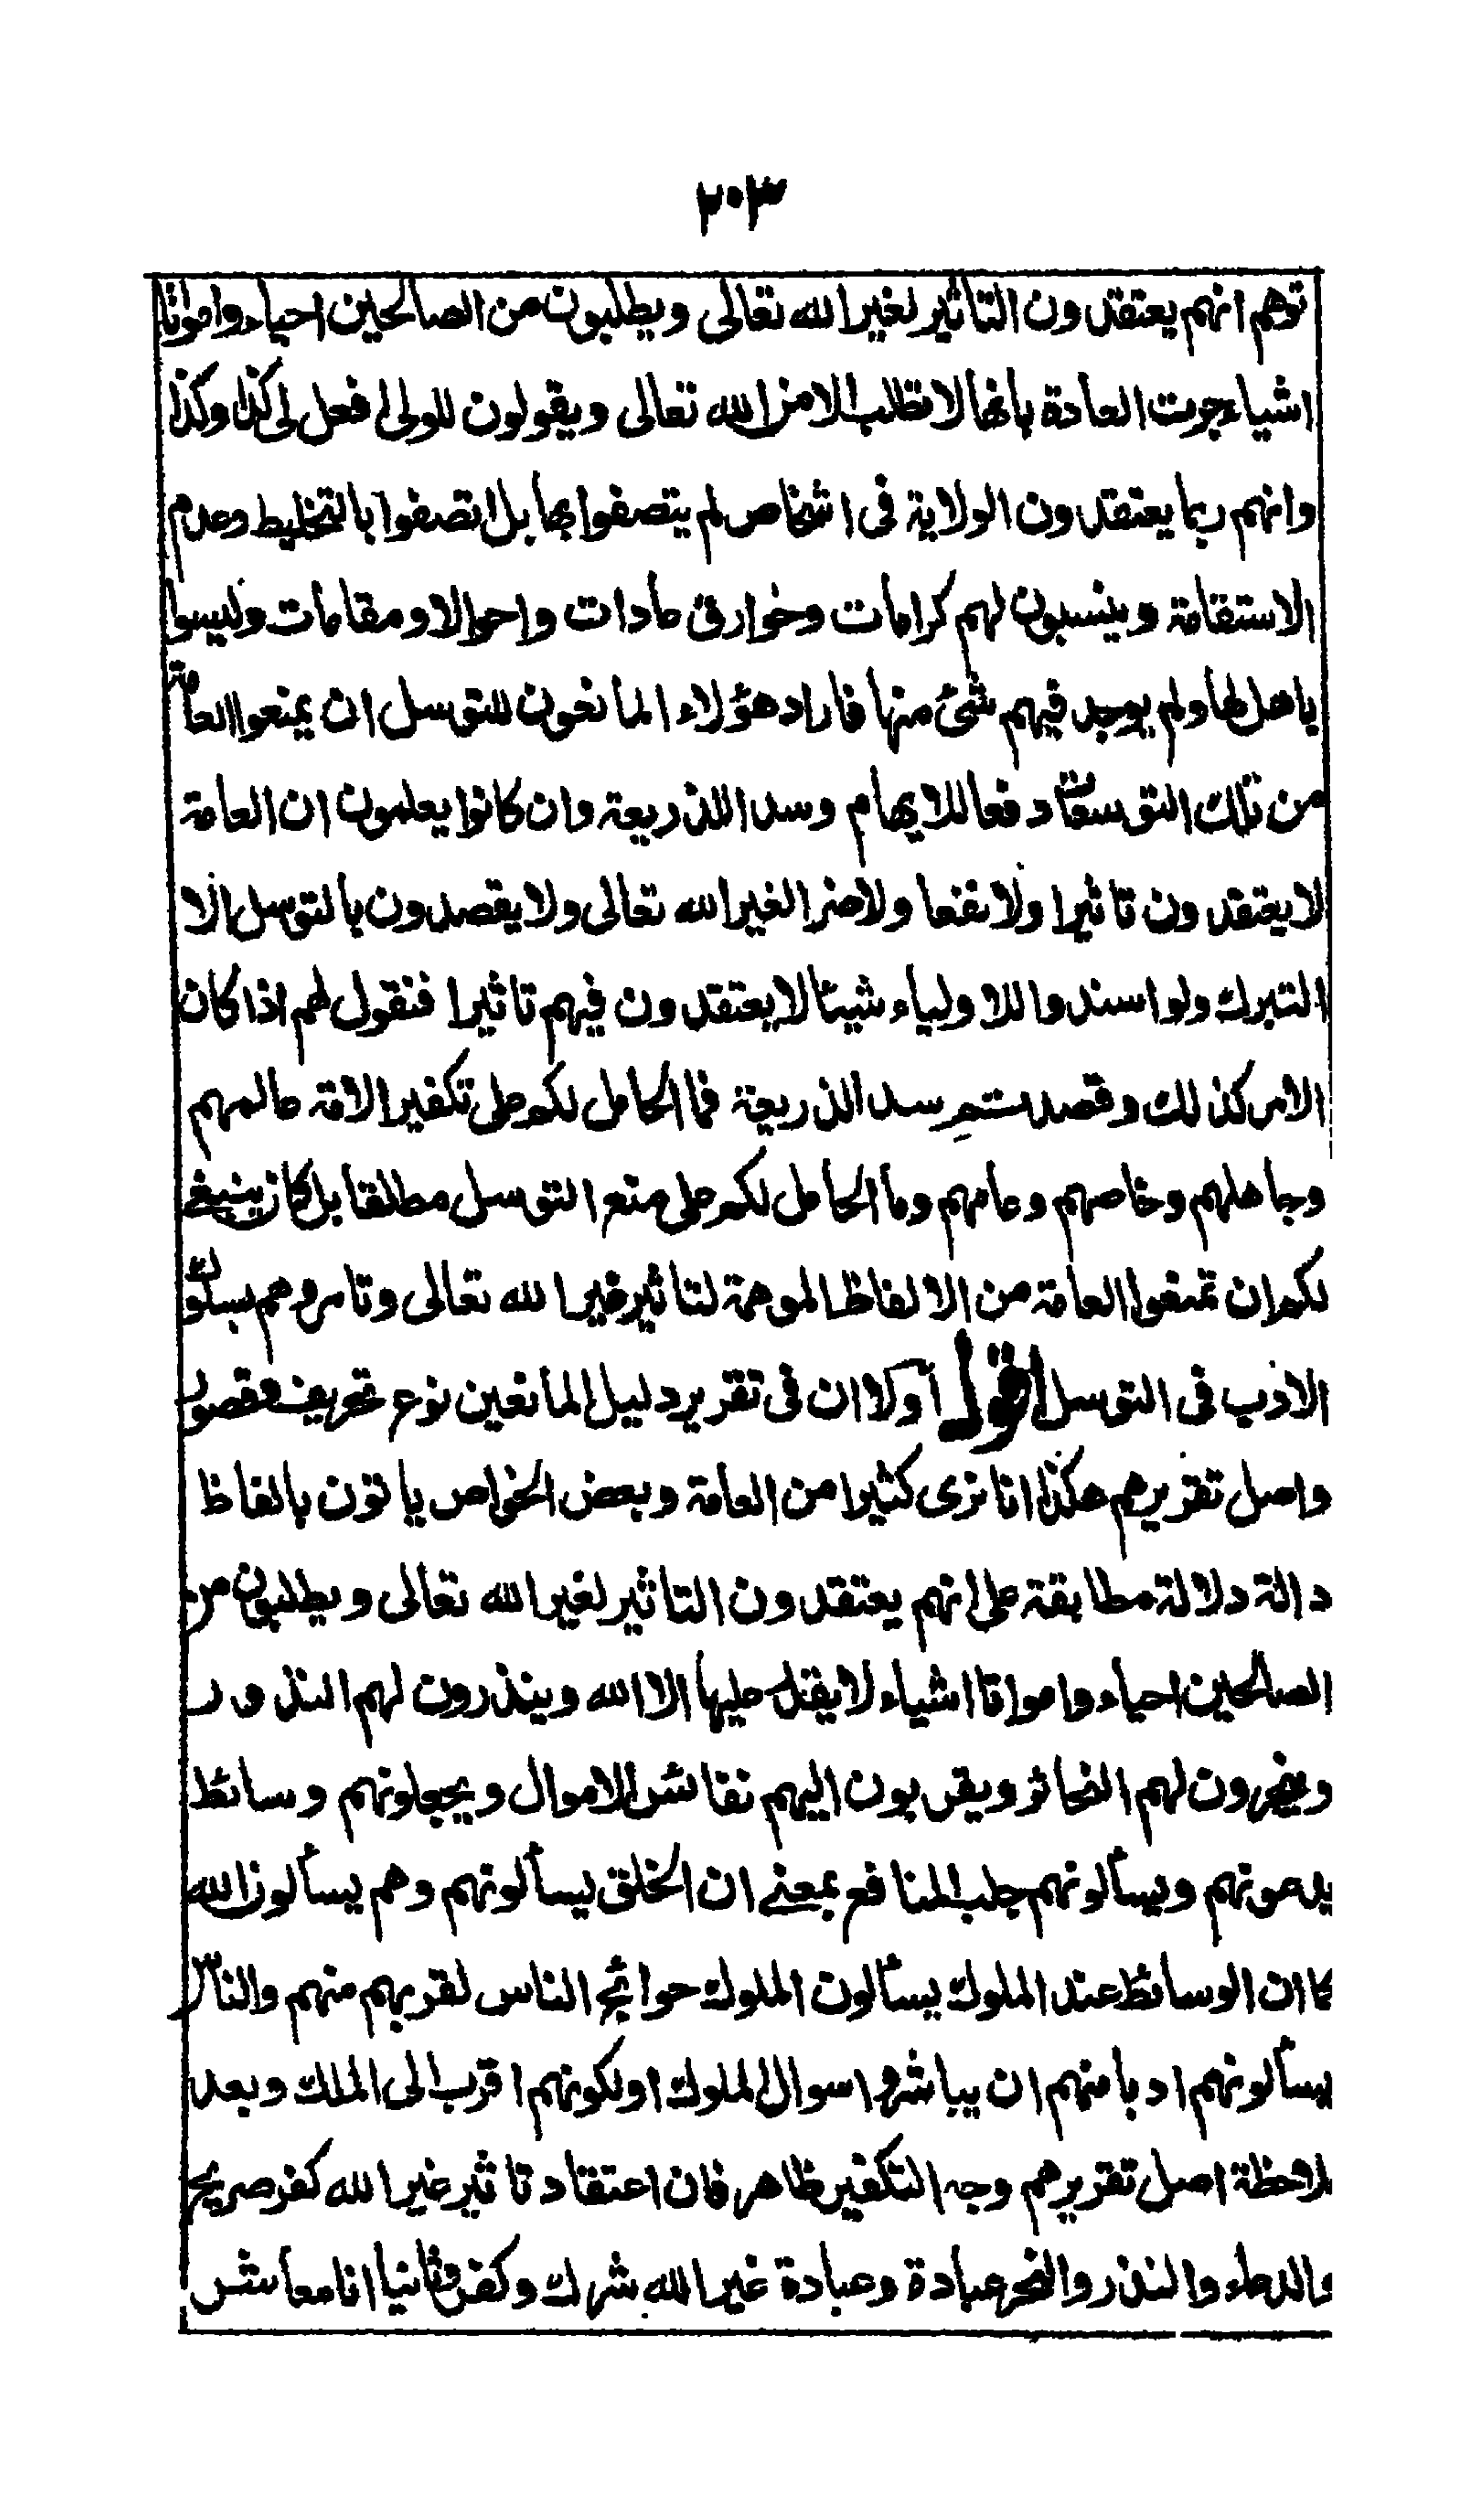 ٢٠٣
توهم انهم يعتقدون التاثير لغير الله تعالى ويطلبون من الصالحين احياء وامواتا
اشياء جرت العادة بانها لا تطلب الا من الله تعالى ويقولون للولى افعل لى كذا وكذا
وانهم ربما يعتقدون الولاية فى اشخاص لم يتصفوا بها بل اتصفوا بالتخليط وعدم
الاستقامة وينسبون لهم كرامات وخوارق عادات واحوالا ومقامات وليسوا
باهل لها ولم يوجد فيهم شئ منها فاراد هؤلاء المانعون للتوسل ان يمنعوا العامة
من تلك التوسعات دفعا للايهام وسدا للذريعة وان كانوا يعلمون ان العامة
لا يعتقدون تاثيرا ولا نفعا ولا ضرا لغير الله تعالى ولا يقصدون بالتوسل الا
التبرك ولو اسندوا للاولياء شيئا لا يعتقدون فيهم تاثيرا فنقول لهم اذا كان
الامر كذلك وقصدتم سد الذريعة فما الحامل لكم على تكفير الامة عالمهم
وجاهلهم وخاصهم وعامهم وما الحامل لكم على منع التوسل مطلقا بل كان ينبغى
لكم ان تمنعوا العامة من الالفاظ الموهمة لتاثير غير الله تعالى وتامروهم بسلوك
الادب فى التوسل اقول اولا ان فى تقرير دليل المانعين نوع تحريف وقصور
واصل تقريرهم هكذا انا نرى كثيرا من العامة وبعض الخواص ياتون بالفاظ
دالة دلالة مطابقة على انهم يعتقدون التاثير لغير الله تعالى ويطلبون من
الصالحين احياء وامواتا اشياء لا يقدر عليها الا الله وينذرون لهم النذور
وينحرون لهم النحائر ويقربون اليهم نفائس الاموال ويجعلونهم وسائط
يدعونهم ويسألونهم جلب المنافع بمعنى ان الخلق يسألونهم وهم يسألون الله
كما ان الوسائط عند الملوك يسألون الملوك حوائج الناس لقربهم منهم والناس
يسألونهم ادبا منهم ان يباشروا سوال الملوك او لكونهم اقرب الى الملك وبعد
ملاحظة اصل تقريرهم وجه التكفير ظاهر فان اعتقاد تاثير غير الله كفر صريح
والدعاء والنذر والنحر عبادة وعبادة غير الله شرك وكفر وثانيا انا معاشر